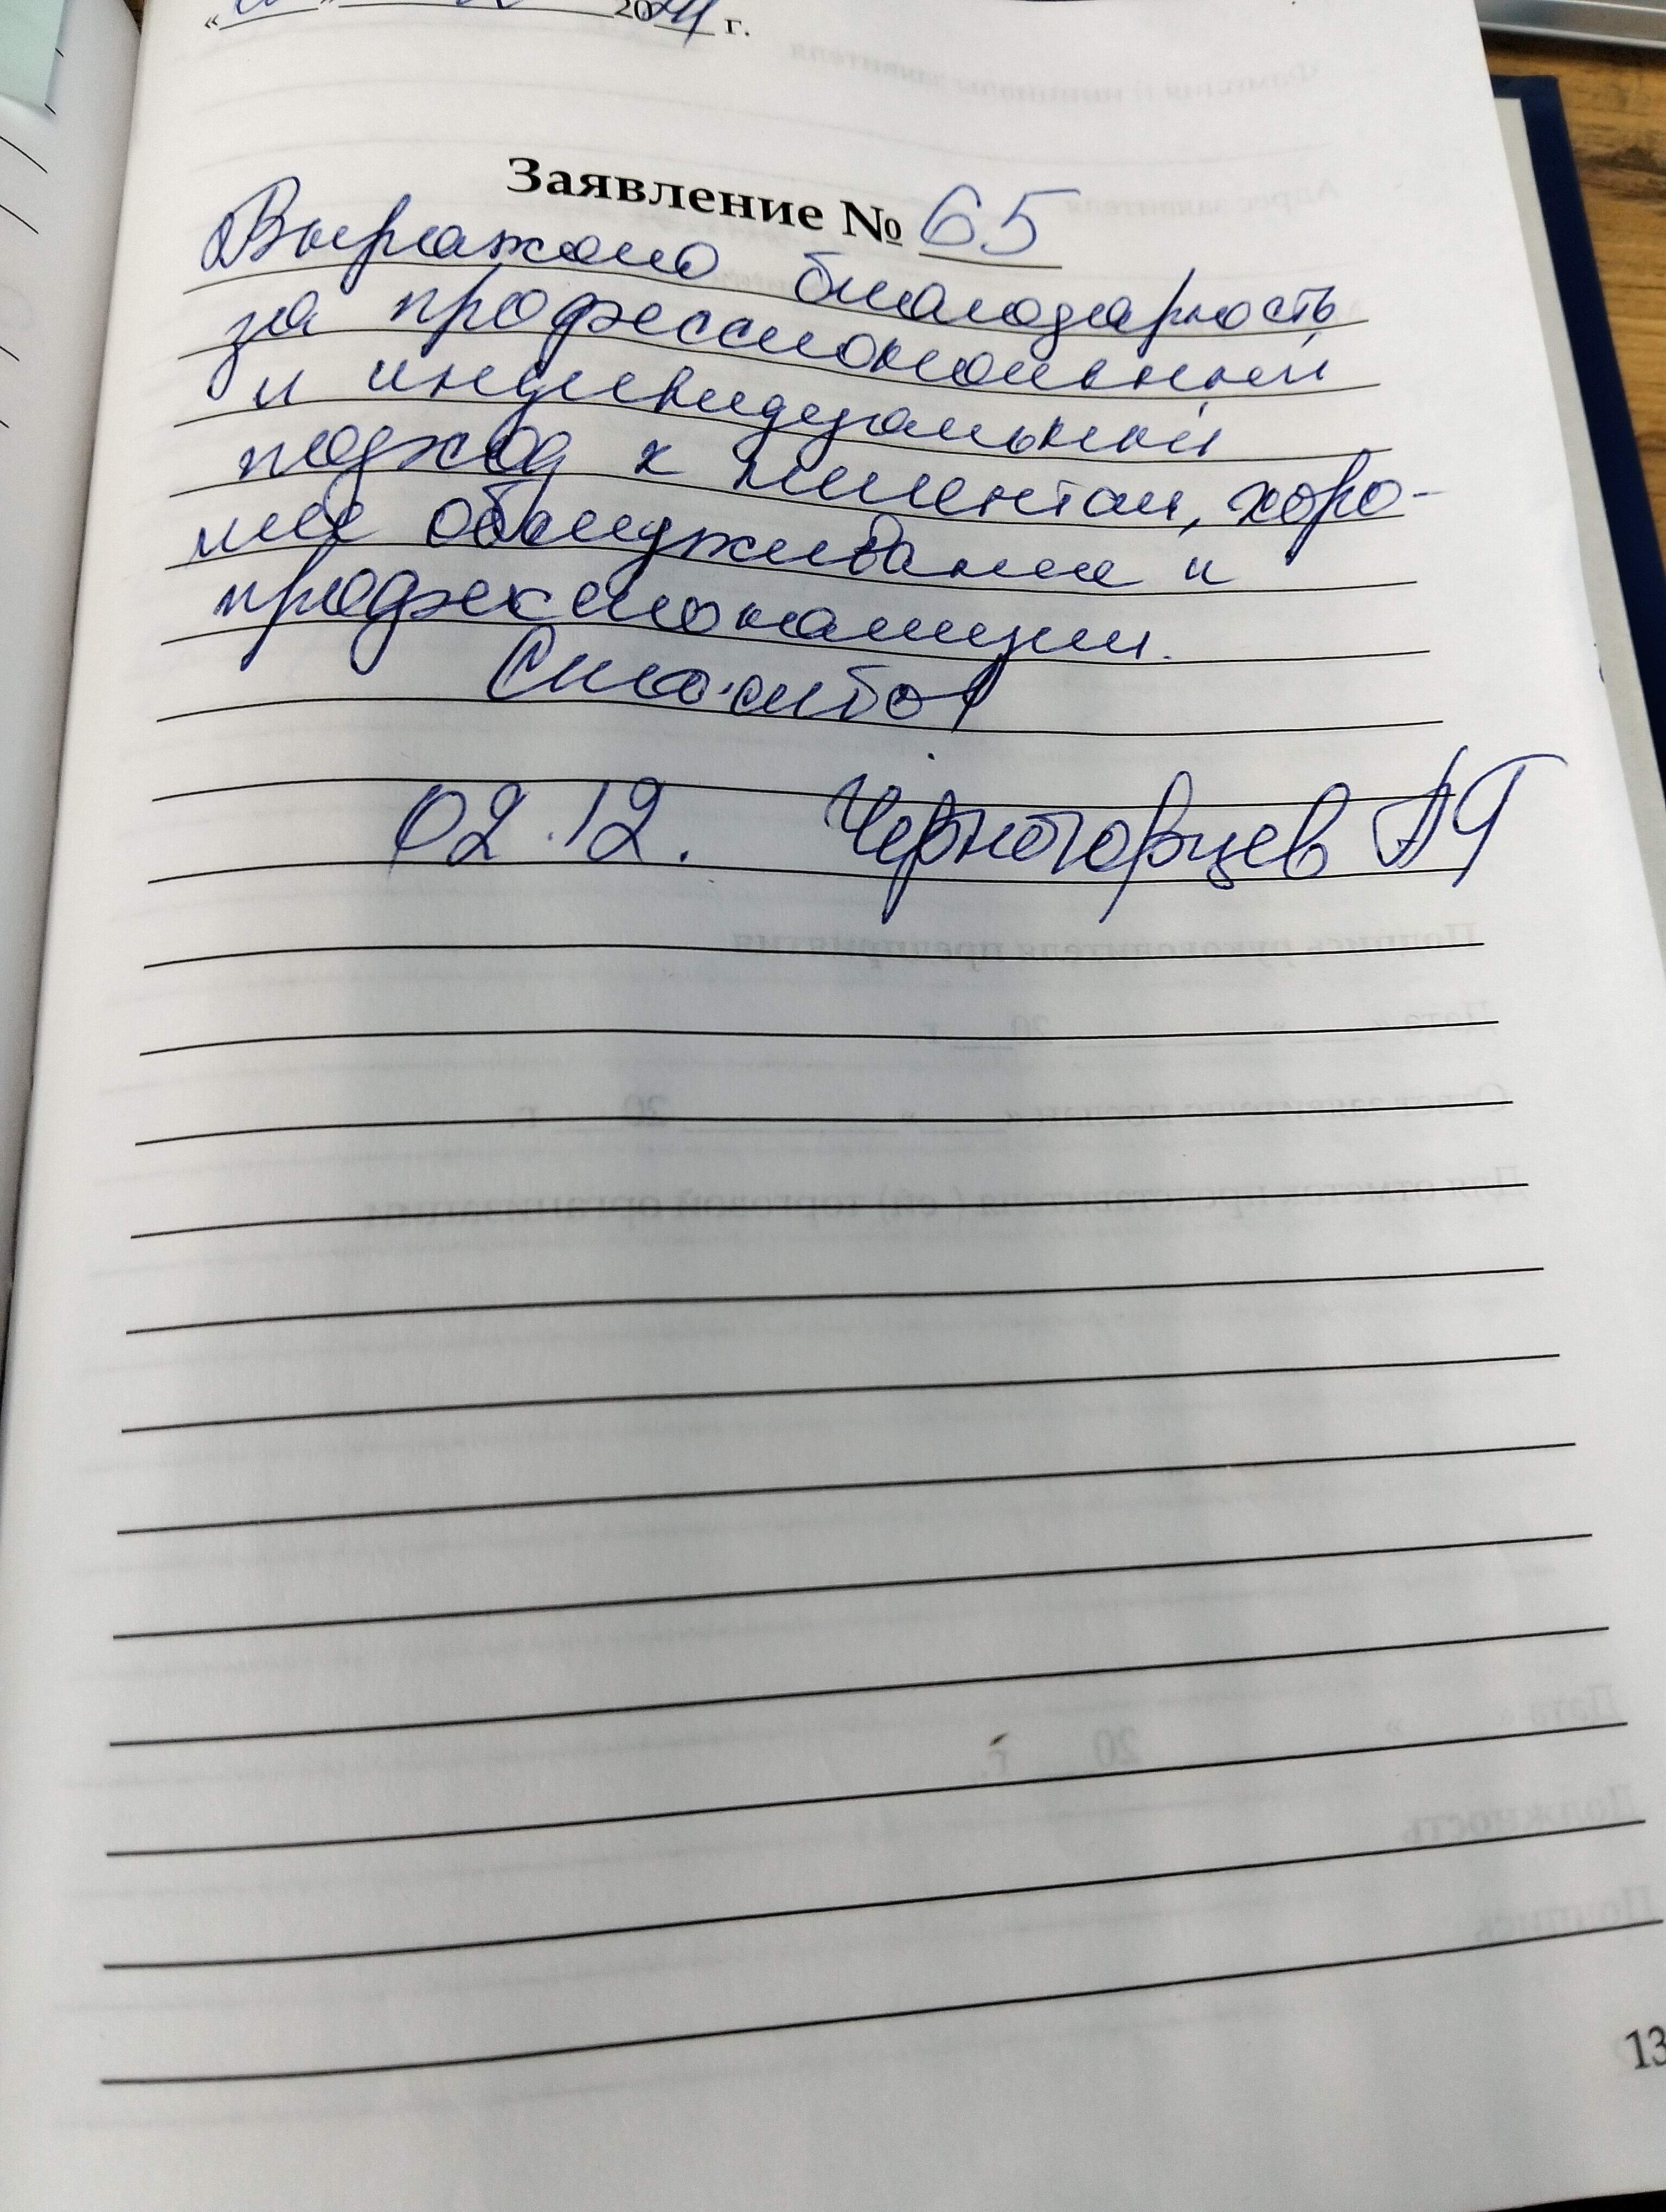 2024 г.
Заявление № 65
Выражаю благодарность
за профессиональный
и индивидуальный
подход к клиентам, хоро-
шее обслуживание и
профессионализм.
Спасибо!
02.12. Черногорцев АГ
13